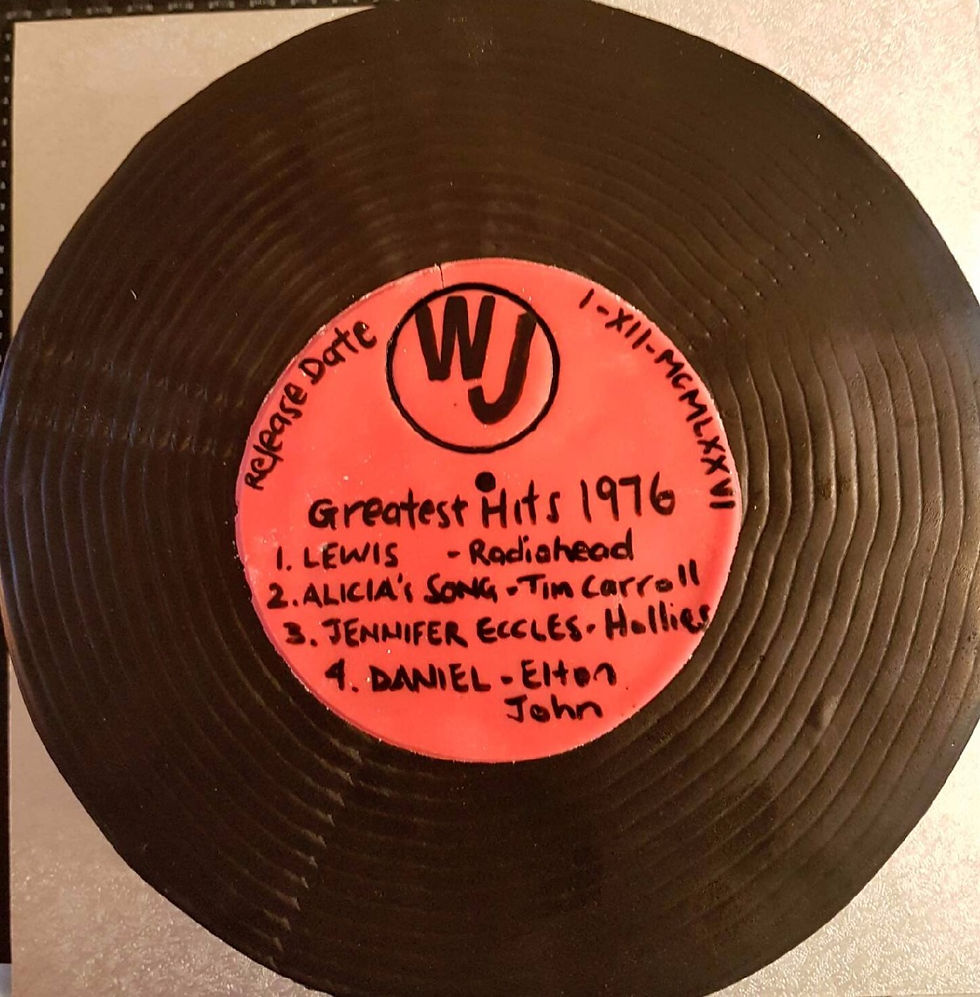 WJ
Release Date
1-XII-MCMLXXVI
Greatest Hits 1976
1. LEWIS - Radiohead
2. ALICIA's SONG - Tim Carroll
3. JENNIFER ECCLES - Hollies
4. DANIEL - Elton
John